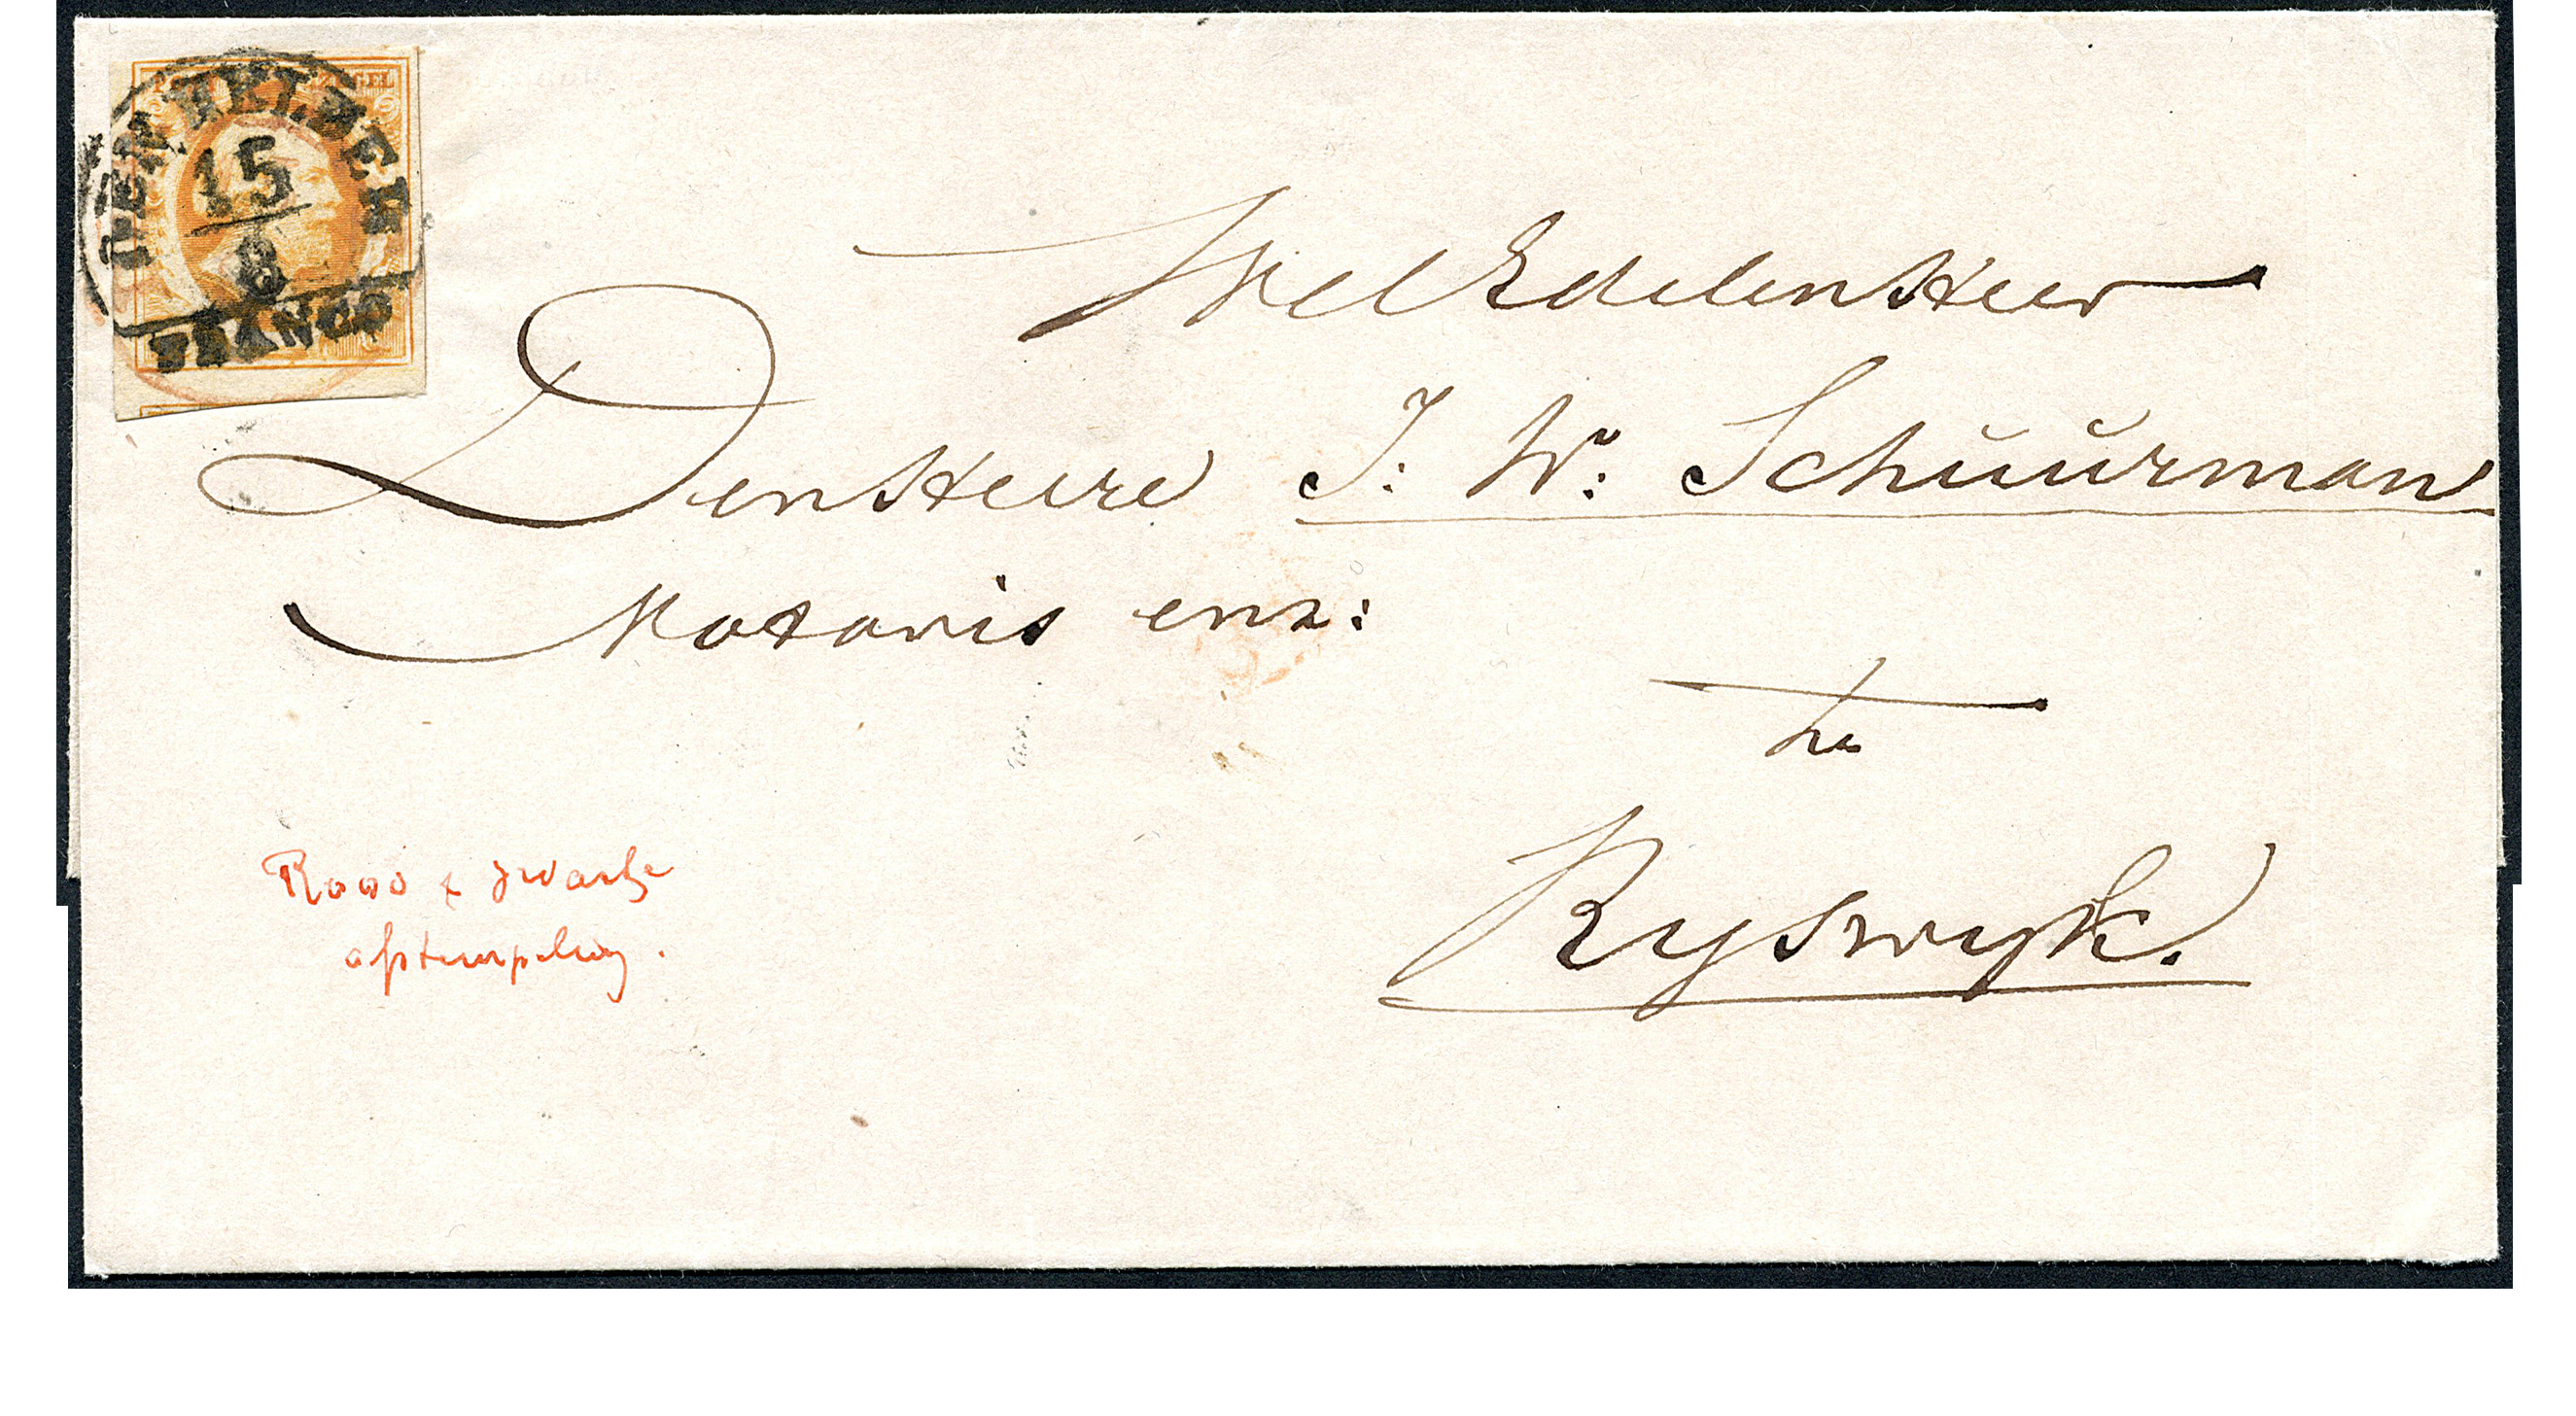 DEN HELDER
15
8
FRANCO
WelEdelen Heer
Den Heere J: W: Schŭŭrman
Notaris enz:
te
Ryswyk.
Rood + zwarte
afstempeling.